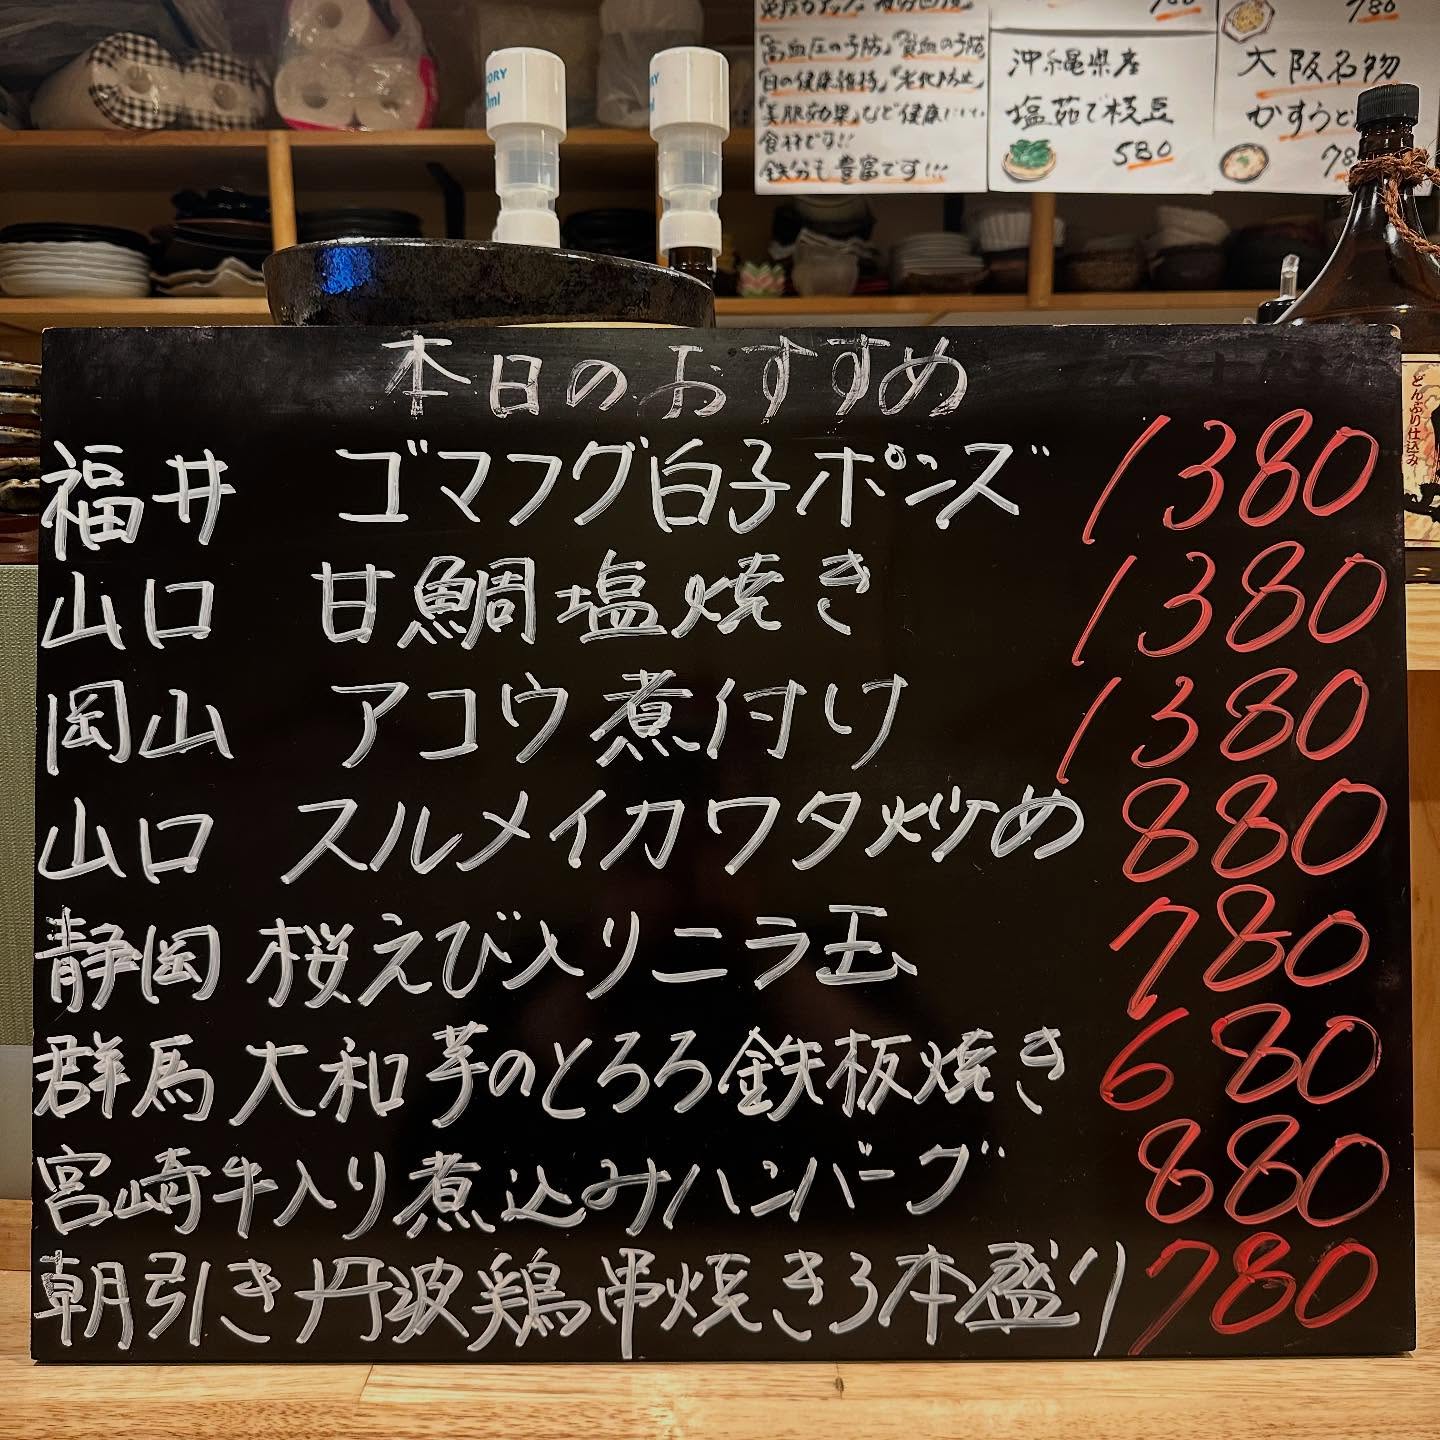 「高血圧の予防」「貧血の予防」
「目の健康維持」「老化防止」
「美肌効果」など健康にいい
食材です!!
鉄分も豊富です!!!
沖縄県産
塩茹で枝豆
580
780
大阪名物
かすうど
78
本日のおすすめ
福井 ゴマフグ白子ポンズ 1380
山口 甘鯛塩焼き 1380
岡山 アコウ煮付け 1380
山口 スルメイカワタ炒め 880
静岡 桜えび入りニラ玉 780
群馬 大和芋のとろろ鉄板焼き 680
宮崎牛入り煮込みハンバーグ 880
朝引き丹波鶏串焼き3本盛り 780
どんぶり仕込み